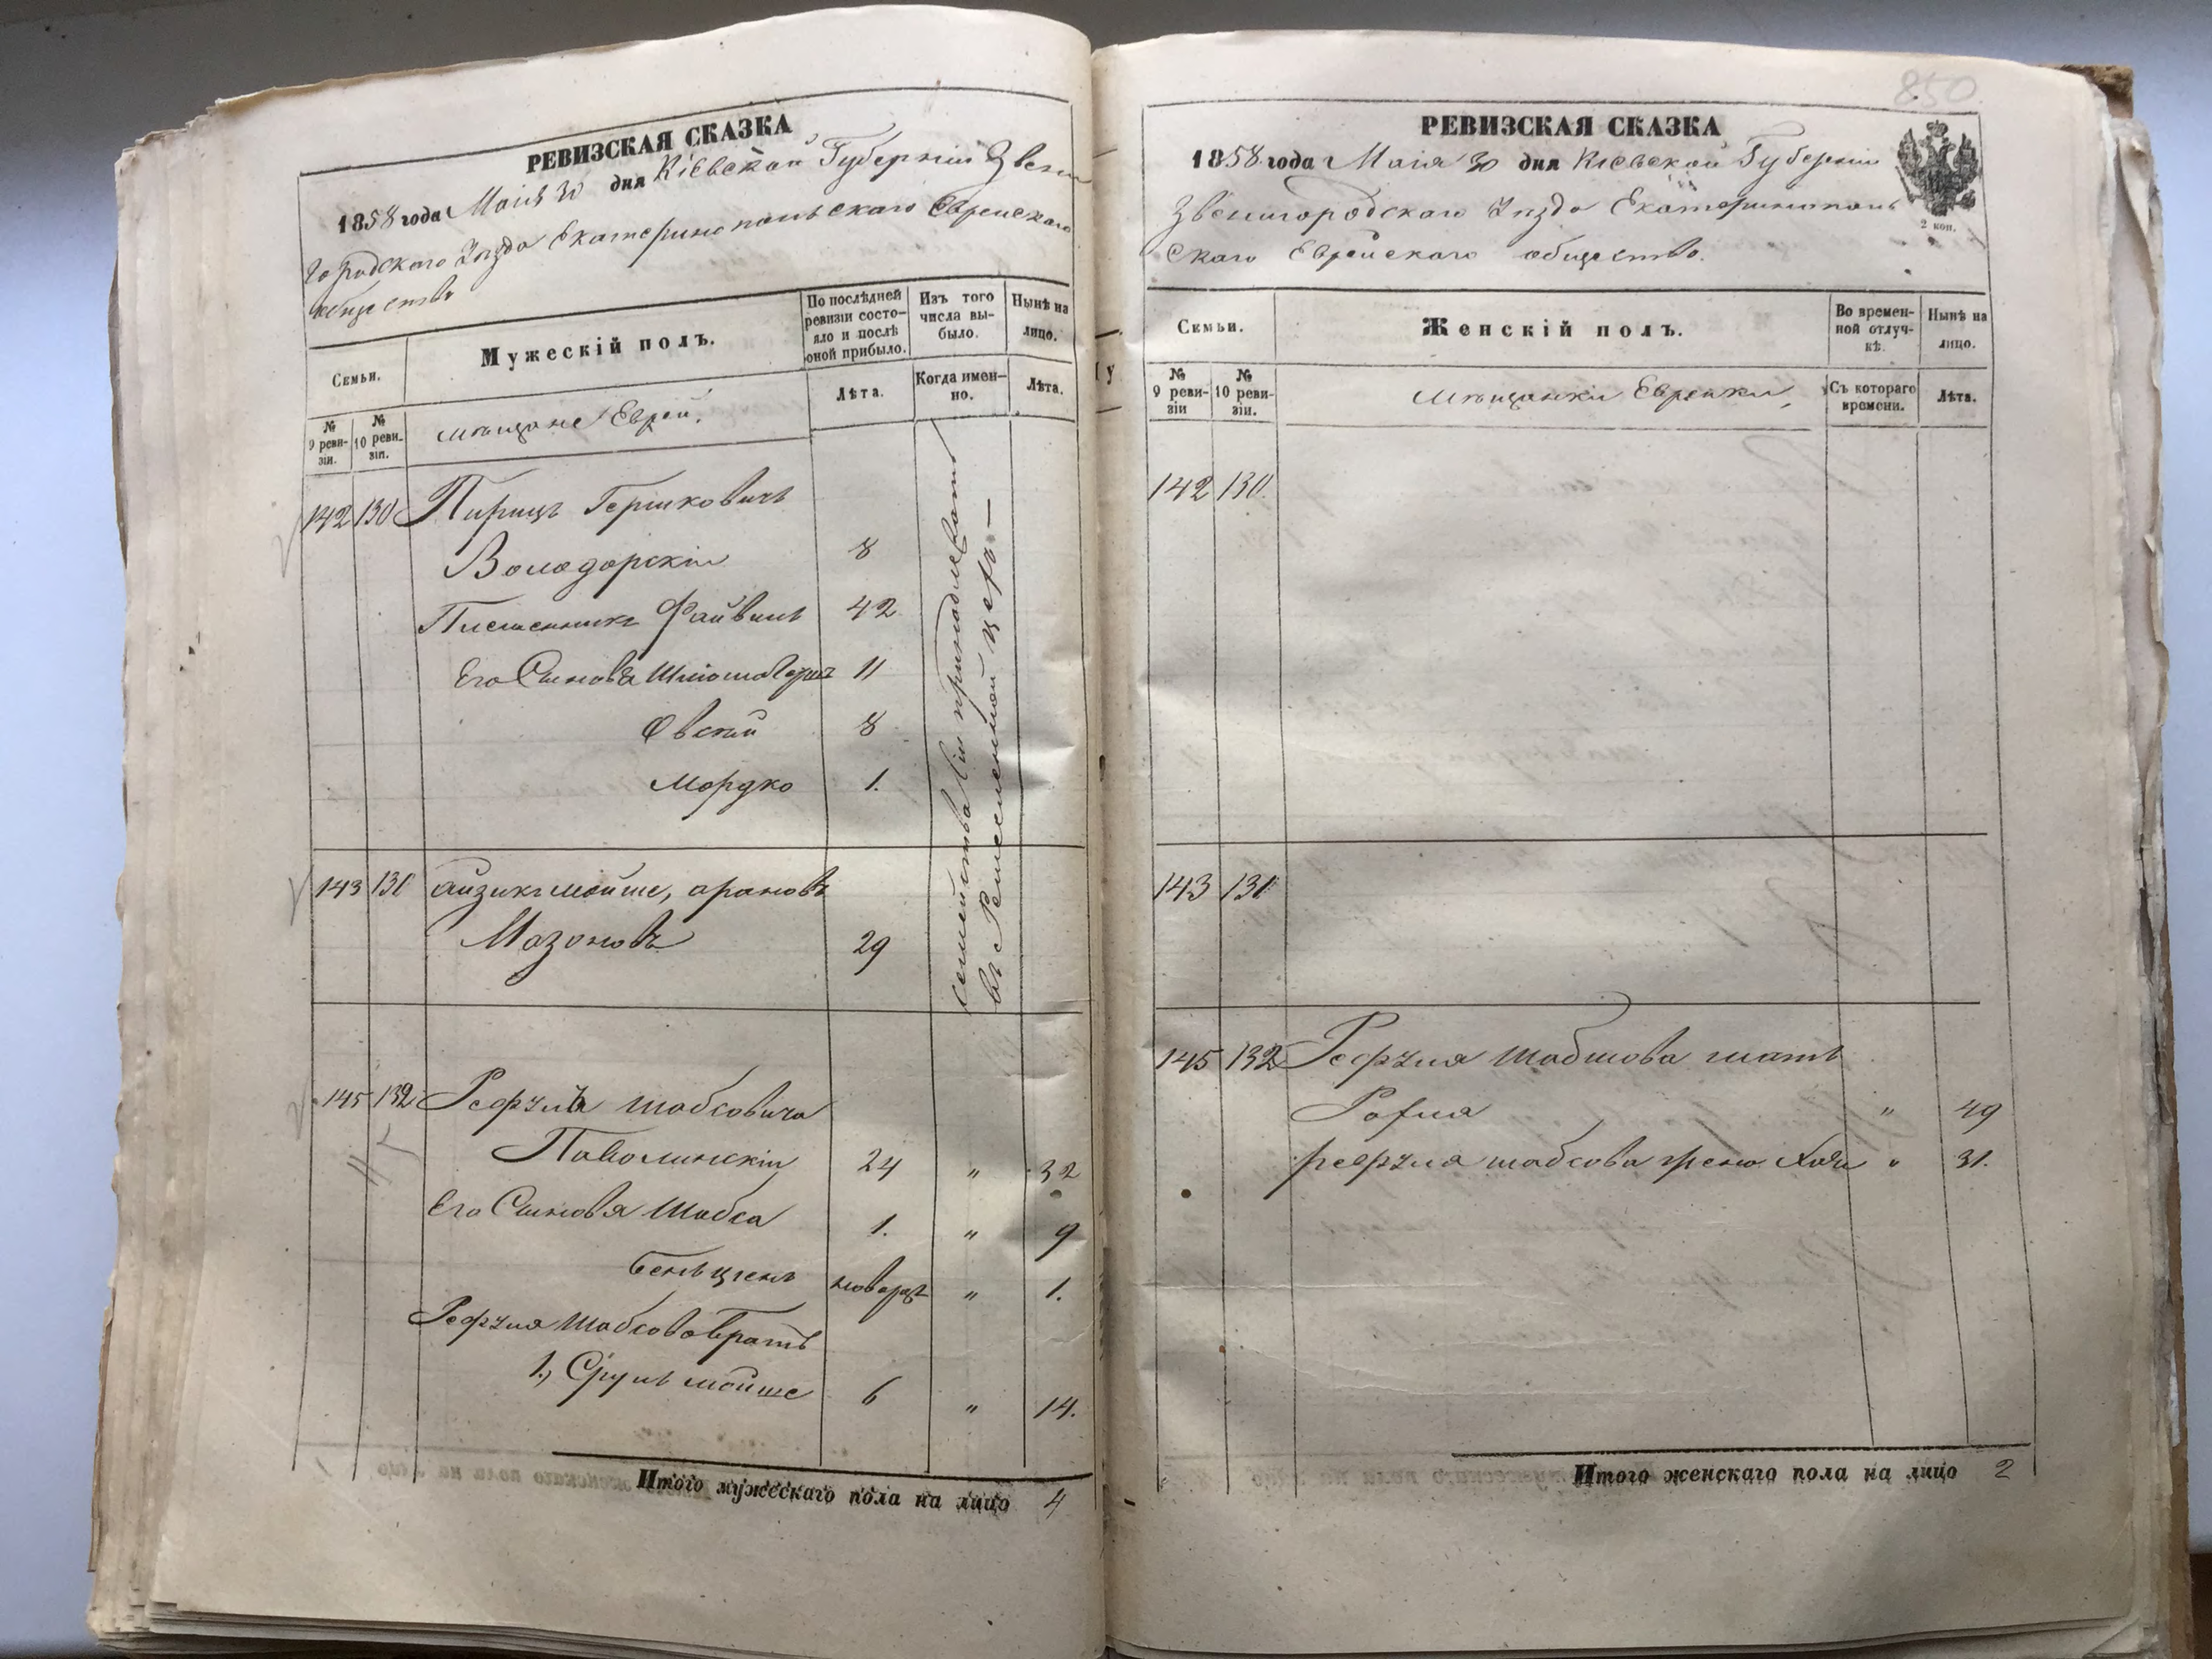 РЕВИЗСКАЯ СКАЗКА
1858 года Маія 30 дня Кіевской Губерніи Звени
городского Уѣзда Екатеринопольскаго Еврейскаго
общества
Семьи.
Мужескій полъ.
По послѣдней ревизіи состо-
яло и послѣ оной прибыло.
Изъ того числа вы-
было.
Нынѣ на лицо.
№ 9 реви-
зіи.
№ 10 реви-
зіи.
мѣщане Евреи.
Лѣта.
Когда имен-
но.
Лѣта.
142 130 Пирицъ Гершковичъ
Володарскій 8
Племенникъ Файвишъ 42
Его Сыновья 11
Овсей 8
Мордко 1.
семейства сіи принадлежатъ
къ Ремесленной цехъ —
143 131 Айзикъ Мойше, Арановъ
Мазоновъ 29
145 132 Рефула Шабсовича
Паволинскій 24 " 32
Его Сыновья Шабса 1. " 9
Бенъционъ новорож " 1.
Рефула Шабсова Братъ
1., Срулъ Мойше 6 " 14.
Итого мужескаго пола на лицо 4
850
РЕВИЗСКАЯ СКАЗКА
1858 года Маія 30 дня Кіевской Губерніи
Звенигородскаго Уѣзда Екатеринополь
скаго Еврейскаго общества.
2 коп.
Семьи.
Женскій полъ.
Во времен-
ной отлуч-
кѣ.
Нынѣ на лицо.
№ 9 реви-
зіи
№ 10 реви-
зіи.
мѣщанки Еврейки,
Съ котораго времени.
Лѣта.
142 130.
143 131
145 132 Рефула Шабшова мать
Рохля " 49
Рефула Шабсова жена Хая " 31.
Итого женскаго пола на лицо 2